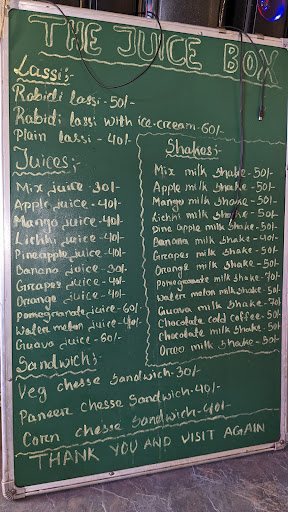 THE JUICE BOX
Lassi:-
Rabidi lassi - 50/-
Rabidi lassi with ice-cream - 60/-
Plain lassi - 40/-
Juices:-
Mix juice - 30/-
Apple juice - 40/-
Mango juice - 40/-
Lichhi juice - 40/-
Pineapple juice - 40/-
Banana juice - 30/-
Grapes juice - 40/-
Orange juice - 40/-
Pomegranate juice - 60/-
Water melon juice - 40/-
Guava juice - 60/-
Shakes:-
Mix milk shake - 50/-
Apple milk shake - 50/-
Mango milk shake - 50/-
Lichhi milk shake - 50/-
Pine apple milk shake - 50/-
Banana milk shake - 40/-
Grapes milk shake - 50/-
Orange milk shake - 50/-
Pomegranate milk shake - 70/-
Water melon milk shake - 50/-
Guava milk shake - 70/-
Chocolate cold coffee - 50/-
Chocolate milk shake - 50/-
Oreo milk shake - 50/-
Sandwich:-
Veg chesse sandwich - 30/-
Paneer chesse sandwich - 40/-
Corn chesse sandwich - 40/-
THANK YOU AND VISIT AGAIN